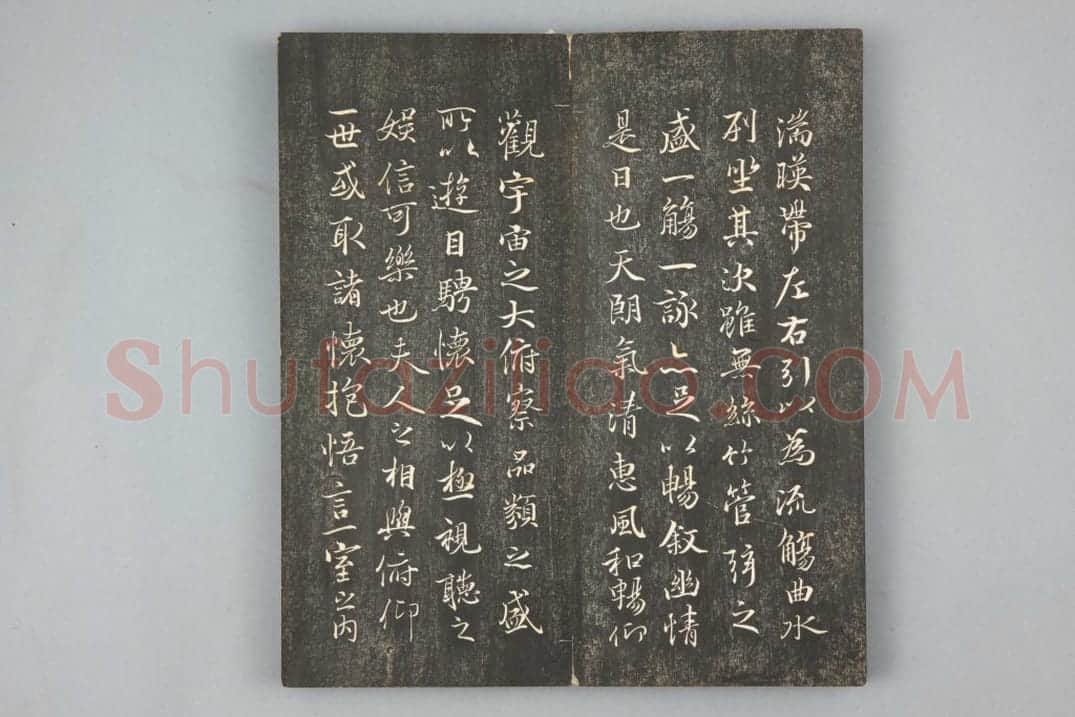 湍暎帶左右引以為流觴曲水
列坐其次雖無絲竹管弦之
盛一觴一詠亦足以暢敘幽情
是日也天朗氣清惠風和暢仰
觀宇宙之大俯察品類之盛
所以遊目騁懷足以極視聽之
娛信可樂也夫人之相與俯仰
一世或取諸懷抱悟言一室之內
Shufaziliao.COM